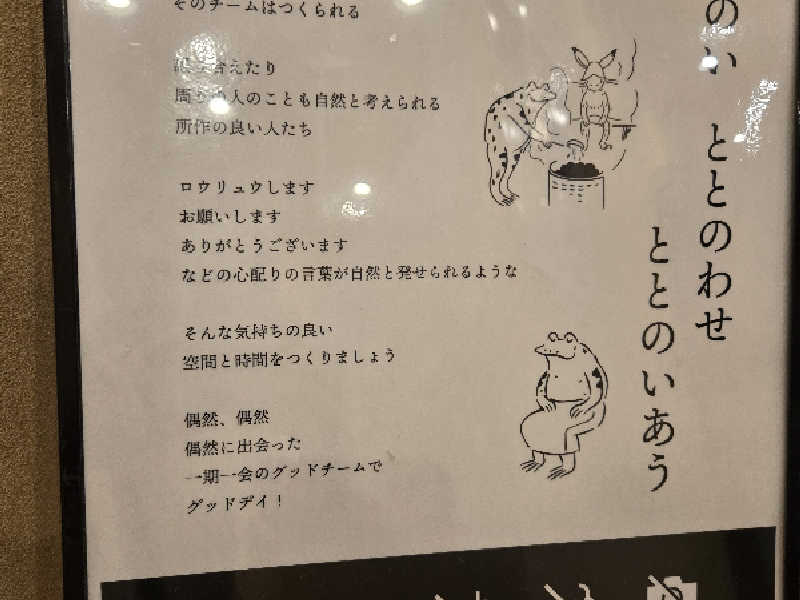 のい
ととのわせ
ととのいあう
そのチームはつくられる
えたり
人のことも自然と考えられる
所作の良い人たち
ロウリュウします
お願いします
ありがとうございます
などの心配りの言葉が自然と発せられるような
そんな気持ちの良い
空間と時間をつくりましょう
偶然、偶然
偶然に出会った
一期一会のグッドチームで
グッドデイ！